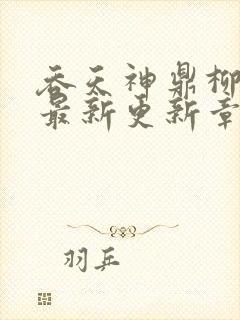 吞天神鼎柳
最新更新章
羽兵